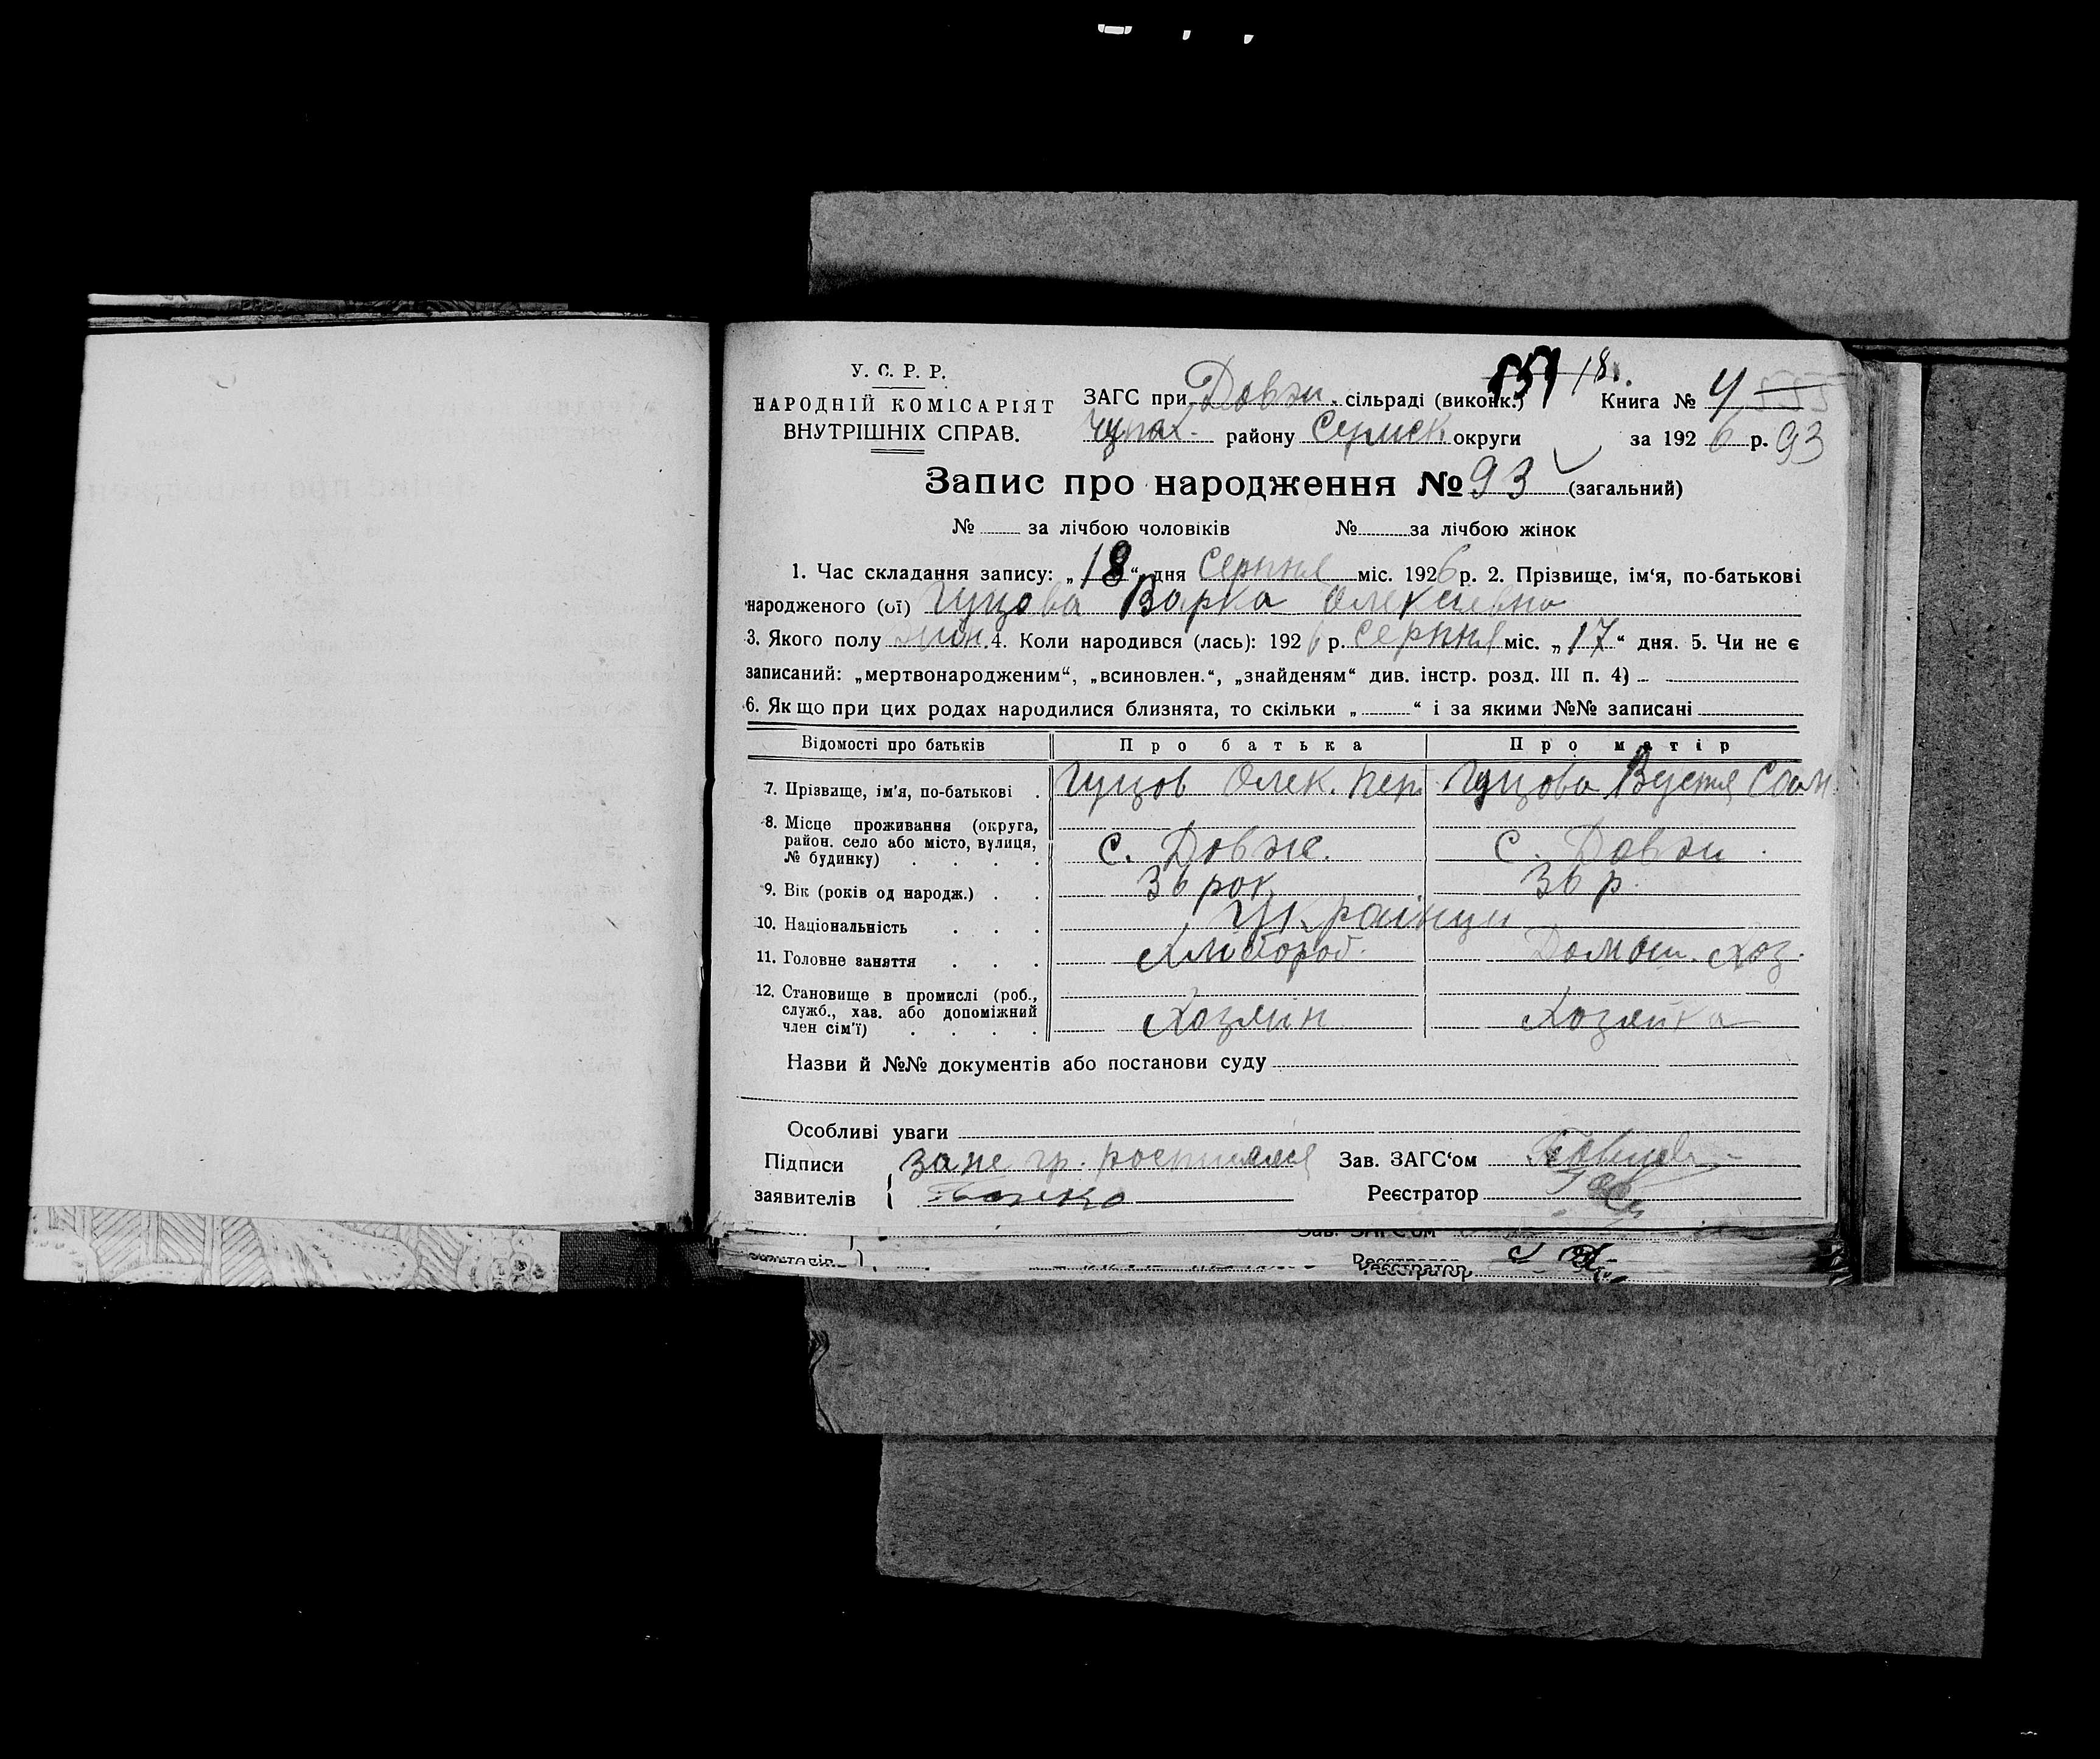 У. С. Р. Р.
НАРОДНІЙ КОМІСАРІЯТ
ВНУТРІШНІХ СПРАВ.
ЗАГС при Довжи. сільраді (виконк.) 18. Книга № 4
Чупах. району Сумск округи за 1926 р. 93
Запис про народження № 93 (загальний)
№ за лічбою чоловіків № за лічбою жінок
1. Час складання запису: „18“ дня Серпня міс. 1926 р. 2. Прізвище, ім‘я, по-батькові
народженого (ої) Гуцова Варка Олексиевна
3. Якого полу жін. 4. Коли народився (лась): 1926 р. Серпня міс. „17“ дня. 5. Чи не є
записаний: „мертвонародженим“, „всиновлен.“, „знайденям“ див. інстр. розд. III п. 4)
6. Якщо при цих родах народилися близнята, то скільки „ “ і за якими №№ записані
Відомості про батьків Про батька Про матір
7. Прізвище, ім'я, по-батькові . Гуцов Олек. Пет. Гуцова Вустя
8. Місце проживання (округа,
район. село або місто, вулиця,
№ будинку) . . . . с. Довже. с. Довжи
9. Вік (років од народж.) . . 36 рок. 36 р.
10. Національність . . . Українци
11. Головне заняття . . . Хлибороб. Домаш. Хоз.
12. Становище в промислі (роб.,
служб., хав. або допоміжний
член сім'ї) . . . . Хозяин Хозяйка
Назви й №№ документів або постанови суду
Особливі уваги
Підписи за не гр. Зав. ЗАГС‘ом
заявителів Реєстратор
Зав. ЗАГС'ом
заявителів Реєстратор